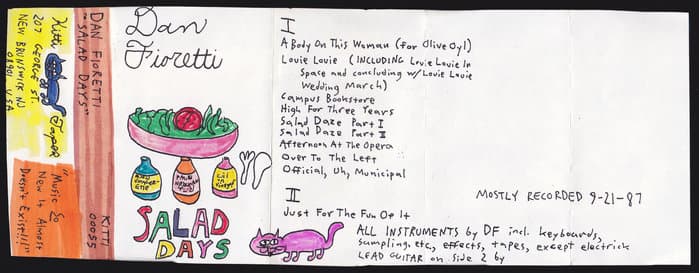 Kitti Tapes
207 GEORGE ST.
NEW BRUNSWICK NJ
08901 U.S.A
"Music So
New It Almost
Doesn't Exist!!!"
DAN FIORETTI
"SALAD DAYS"
KITTI
00055
Dan
Fioretti
SALAD
DAYS
I
A Body On This Woman (for Olive Oyl)
Louie Louie (INCLUDING Louie Louie In
Space and concluding w/ Louie Louie
Wedding March)
Campus Bookstore
High For Three Years
Salad Daze Part I
Salad Daze Part II
Afternoon At The Opera
Over To The Left
Official, Uh, Municipal
II
Just For The Fun Of It
MOSTLY RECORDED 9-21-87
ALL INSTRUMENTS by DF incl. keyboards,
sampling, etc, effects, tapes, except electrick
LEAD GUITAR on side 2 by